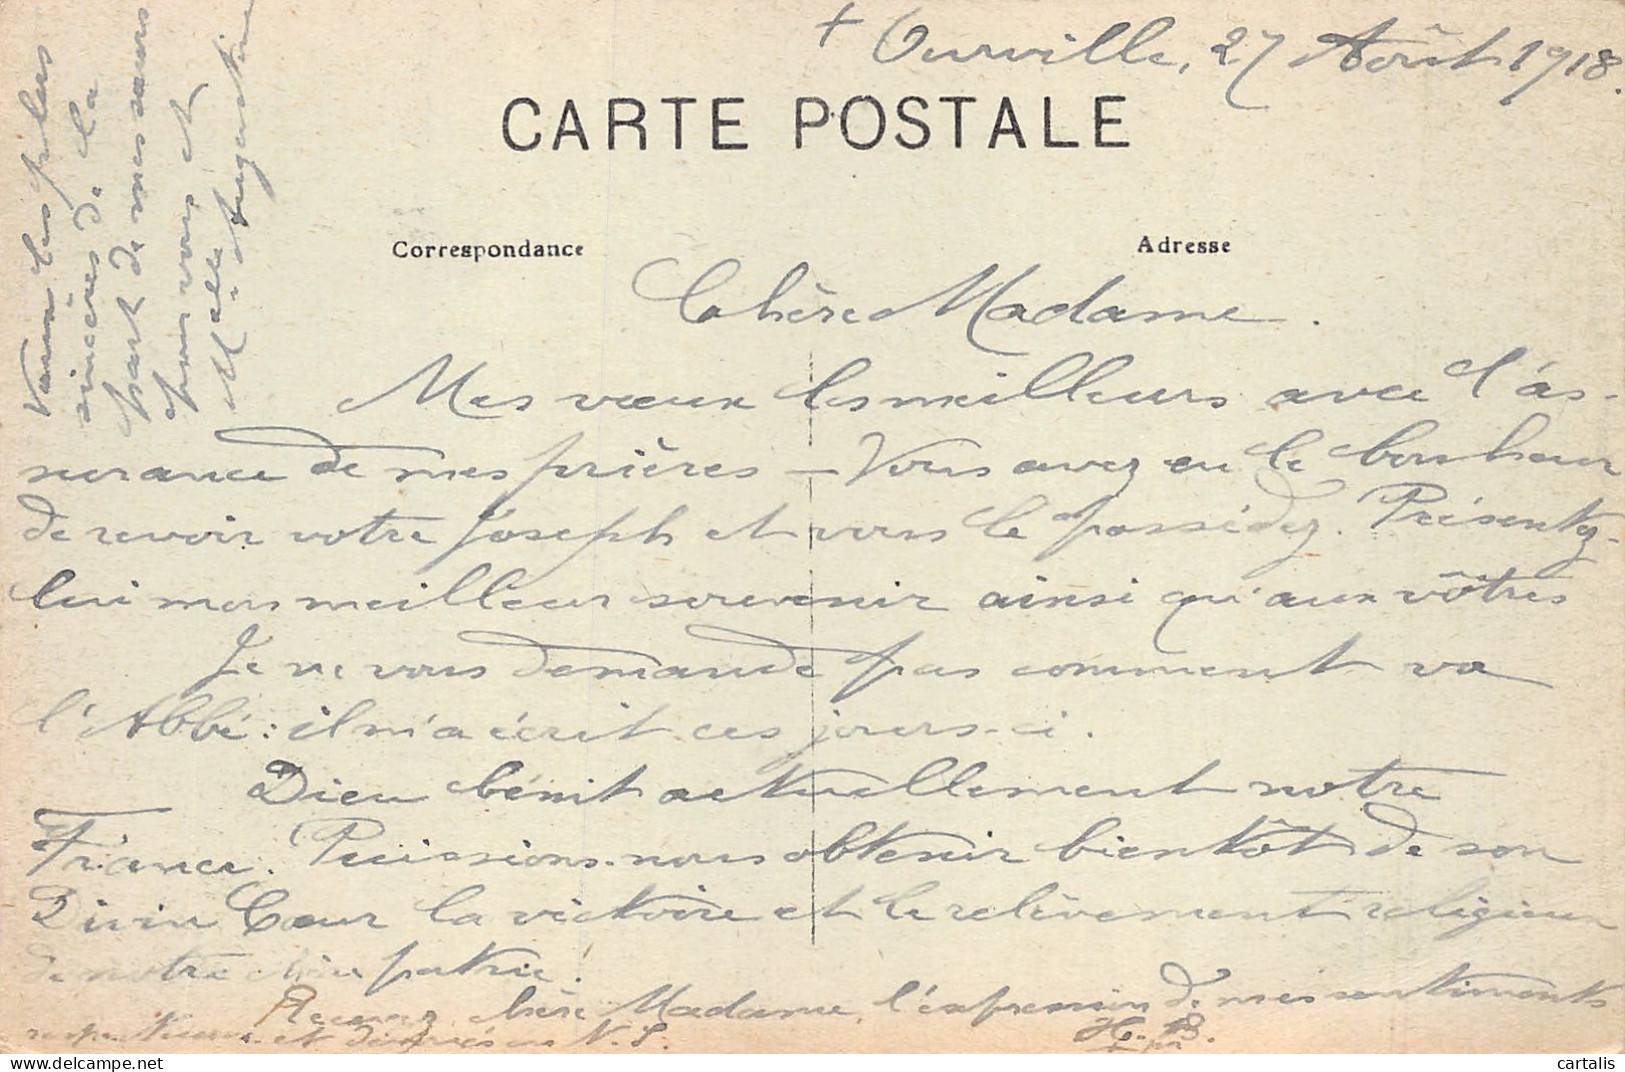 + Ourville, 27 Août 1918.
CARTE POSTALE
Correspondance
Adresse
Chère Madame.
Mes vœux les meilleurs avec l'as-
surance de mes prières – Vous avez eu le bonheur
de revoir votre Joseph et vous le possédez. Présentez-
lui mon meilleur souvenir ainsi qu'aux vôtres
Je ne vous demande pas comment va
l'Abbé : il m'a écrit ces jours-ci.
Dieu bénit actuellement notre
France. Puissions-nous obtenir bientôt de son
Divin Cœur la victoire et le relèvement religieux
de notre chère patrie.
Recevez chère Madame, l'expression de mes sentiments
respectueux et dévoués en N. S.
H. B.
Vœux les plus
sincères de la
part de mes sœurs
pour vous et
Melle Augustine
cartalis